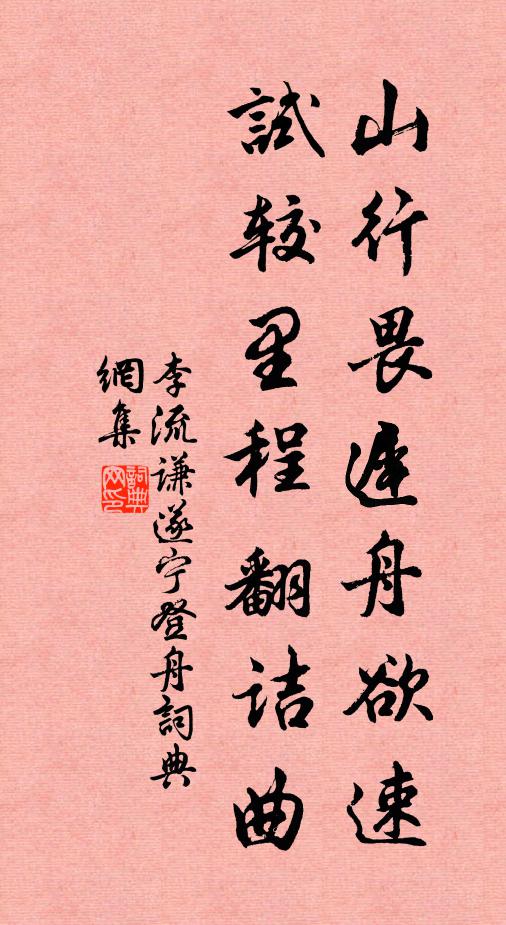 山行畏遲舟欲速
試較里程翻詰曲
李流謙遂宁登舟詞典
網集
詞典
网印